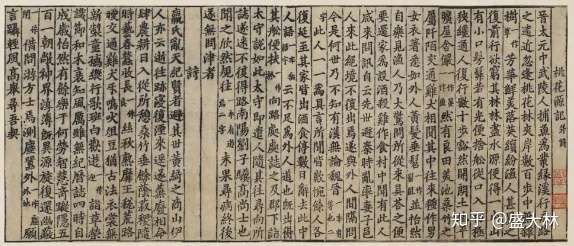 桃花源記并詩
晉太元中武陵人捕魚為業緣溪行忘路
之遠近忽逢桃花林夾岸數百步中無雜
樹芳華鮮美落英繽紛漁人甚異之
復前行欲窮其林林盡水源便得一山山
有小口髣髴若有光便捨舩從口入初極
狹纔通人復行數十步豁然開朗土地平
曠屋舍儼然有良田美池桑竹之
屬阡陌交通雞犬相聞其中往來種作男
女衣著悉如外人黃髮垂髫並怡然
自樂見漁人乃大驚問所從來具答之便
要還家為設酒殺雞作食村中聞有此人
咸來問訊自云先世避秦時亂率妻子邑
人來此絕境不復出焉遂與外人間隔問
今是何世乃不知有漢無論魏晉此
人一一為具言所聞皆歎惋餘人各
復延至其家皆出酒食停數日辭去此中
人語云不足為外人道也既出得
其船便扶向路處處誌之及郡下詣
太守說如此太守即遣人隨其往尋向所
誌遂迷不復得路南陽劉子驥高尚士也
聞之欣然規往未果尋病終後
遂無問津者
詩
嬴氏亂天紀賢者避其世黃綺之商山伊
人亦云逝往迹浸復湮來逕遂蕪廢相命
肆農耕日入從所憩桑竹垂餘蔭菽稷隨
時藝春蠶收長絲秋熟靡王稅荒路
曖交通雞犬互鳴吠俎豆猶古法衣裳無
新製童孺縱行歌斑白歡遊詣草榮
識節和木衰知風厲雖無紀曆誌四時自
成歲怡然有餘樂于何勞智慧奇蹤隱五
百一朝敞神界淳薄既異源旋復還幽
蔽借問游方士焉測塵囂外願
言躡輕風高舉尋吾契
知乎 @盛大林